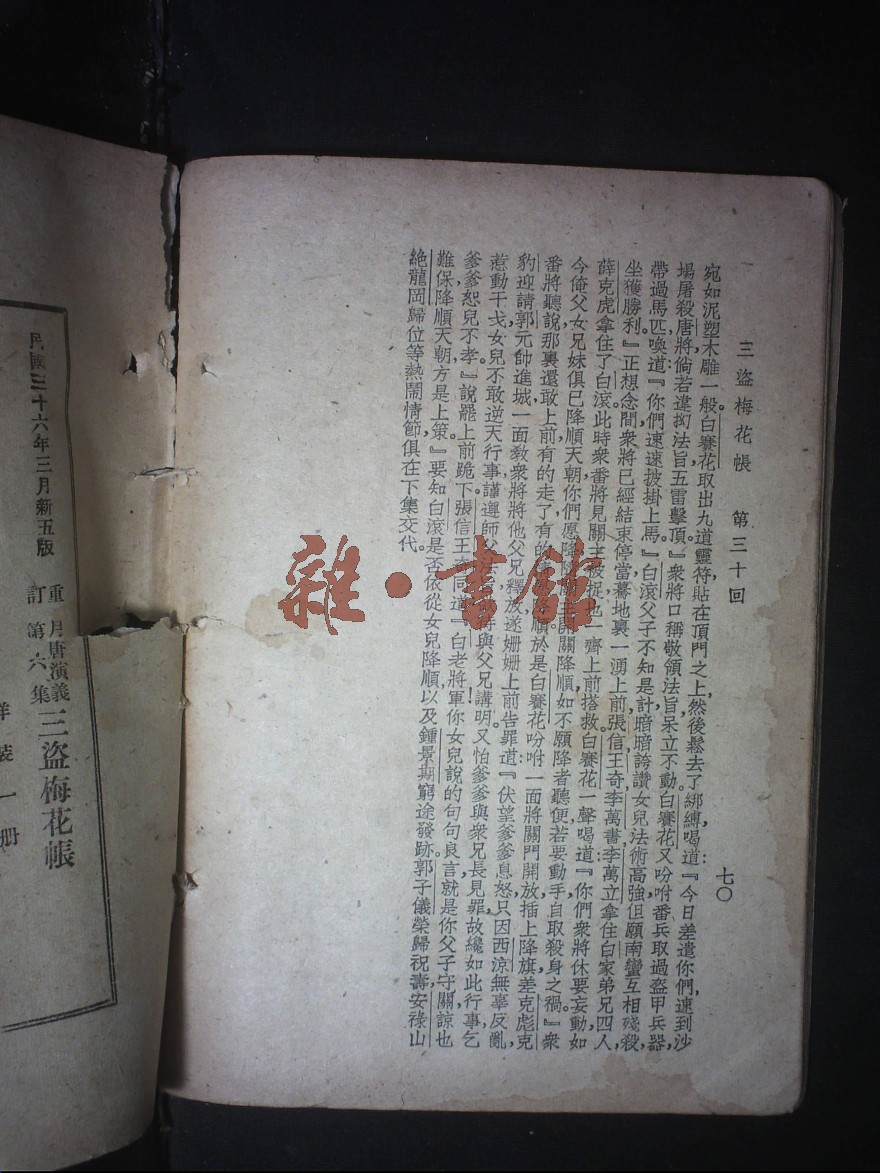 三盜梅花帳　第三十回　七〇
宛如泥塑木雕一般。白賽花取出九道靈符、貼在頂門之上、然後鬆去了綁縛、喝道：『今日差遣你們、速到沙
場屠殺唐將、倘若違拗法旨、五雷擊頂。』衆將口稱敬領法旨、呆立不動。白賽花又吩咐番兵取過盔甲兵器、
帶過馬匹、喚道：『你們速速披掛上馬。』白滾父子不知是計、暗暗誇讚女兒法術高強、但願南蠻互相殘殺、
坐獲勝利。』正想念間、衆將已經結束停當、驀地裏一湧上前、張信王奇李萬書李萬立拿住白家弟兄四人、
薛克虎拿住了白滾、此時衆番將見關主被捉、也一齊上前搭救、白賽花一聲喝道：『你們衆將休要妄動、如
今俺父女兄妹俱已降順天朝、你們愿降開關降順、如不願降者聽便、若要動手、自取殺身之禍。』衆
番將聽說、那裏還敢上前、有的走了、有的降順、於是白賽花吩咐：一面將關門開放、插上降旗、差克彪克
豹迎請郭元帥進城、一面教衆將將他父兄釋放、遂姗姗上前告罪道：『伏望爹爹息怒、只因西涼無辜反亂、
惹動干戈、女兒不敢逆天行事、謹遵師父與父兄講明、又怕爹爹與衆兄長見罪、故纔如此行事、乞
爹爹恕兒不孝。』說罷上前跪下。張信王奇同道：『白老將軍、你女兒說的句句良言、就是你父子守關、諒也
難保、降順天朝、方是上策。』要知白滾是否依從女兒降順、以及鍾景期窮途發跡、郭子儀榮歸祝壽、安祿山
絶龍岡歸位等熱鬧情節、俱在下集交代。
雜·書館
民國三十六年三月新五版
重訂
月唐演義
第六集
三盜梅花帳
洋裝一册